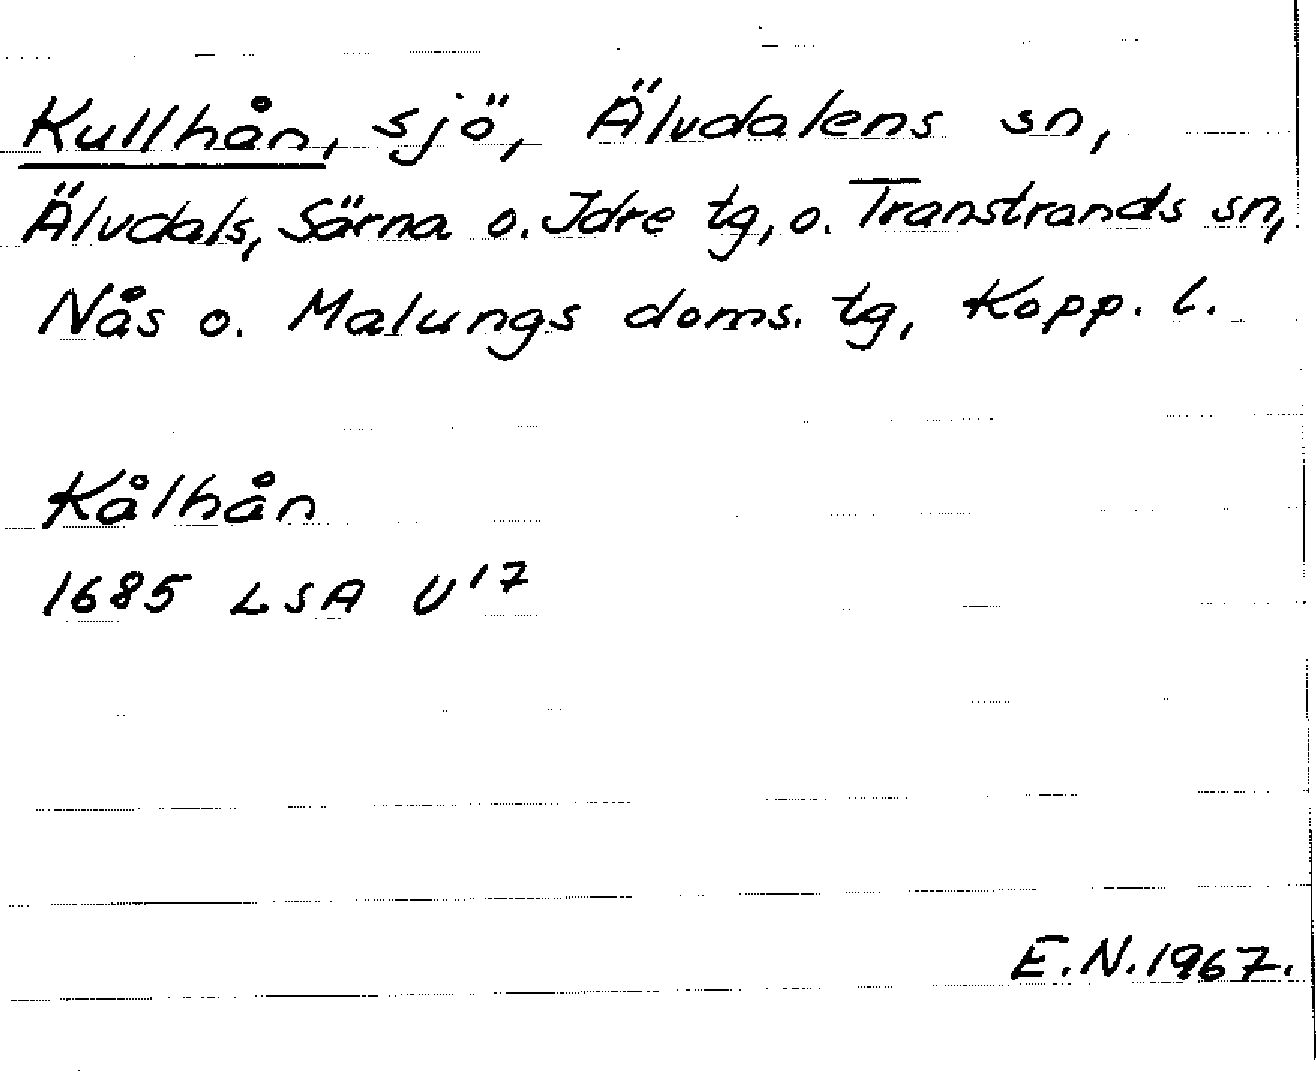 Kullhån, sjö, Älvdalens sn,
Älvdals, Särna o. Idre tg, o. Transtrands sn,
Nås o. Malungs doms. tg, Kopp. l.
Kålhån
1685 LSA U¹⁷
E.N.1967.